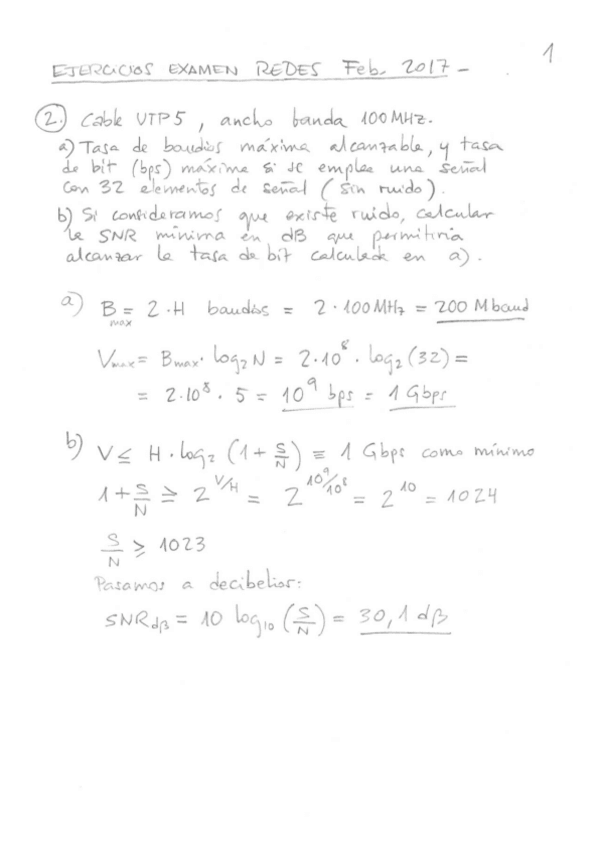 1
EJERCICIOS EXAMEN REDES Feb. 2017 -
2. Cable UTP5, ancho banda 100 MHz.
a) Tasa de baudios máxima alcanzable, y tasa
de bit (bps) máxima si se emplea una señal
con 32 elementos de señal (sin ruido).
b) Si consideramos que existe ruido, calcular
la SNR mínima en dB que permitiría
alcanzar la tasa de bit calculada en a).
a) Bmax = 2·H baudios = 2·100 MHz = 200 Mbaud
Vmax = Bmax · log₂ N = 2·10⁸ · log₂(32) =
= 2·10⁸ · 5 = 10⁹ bps = 1 Gbps
b) V ≤ H · log₂ (1 + S/N) = 1 Gbps como mínimo
1 + S/N ≥ 2^(V/H) = 2^(10⁹/10⁸) = 2¹⁰ = 1024
S/N ≥ 1023
Pasamos a decibelios:
SNRdB = 10 log₁₀ (S/N) = 30,1 dB